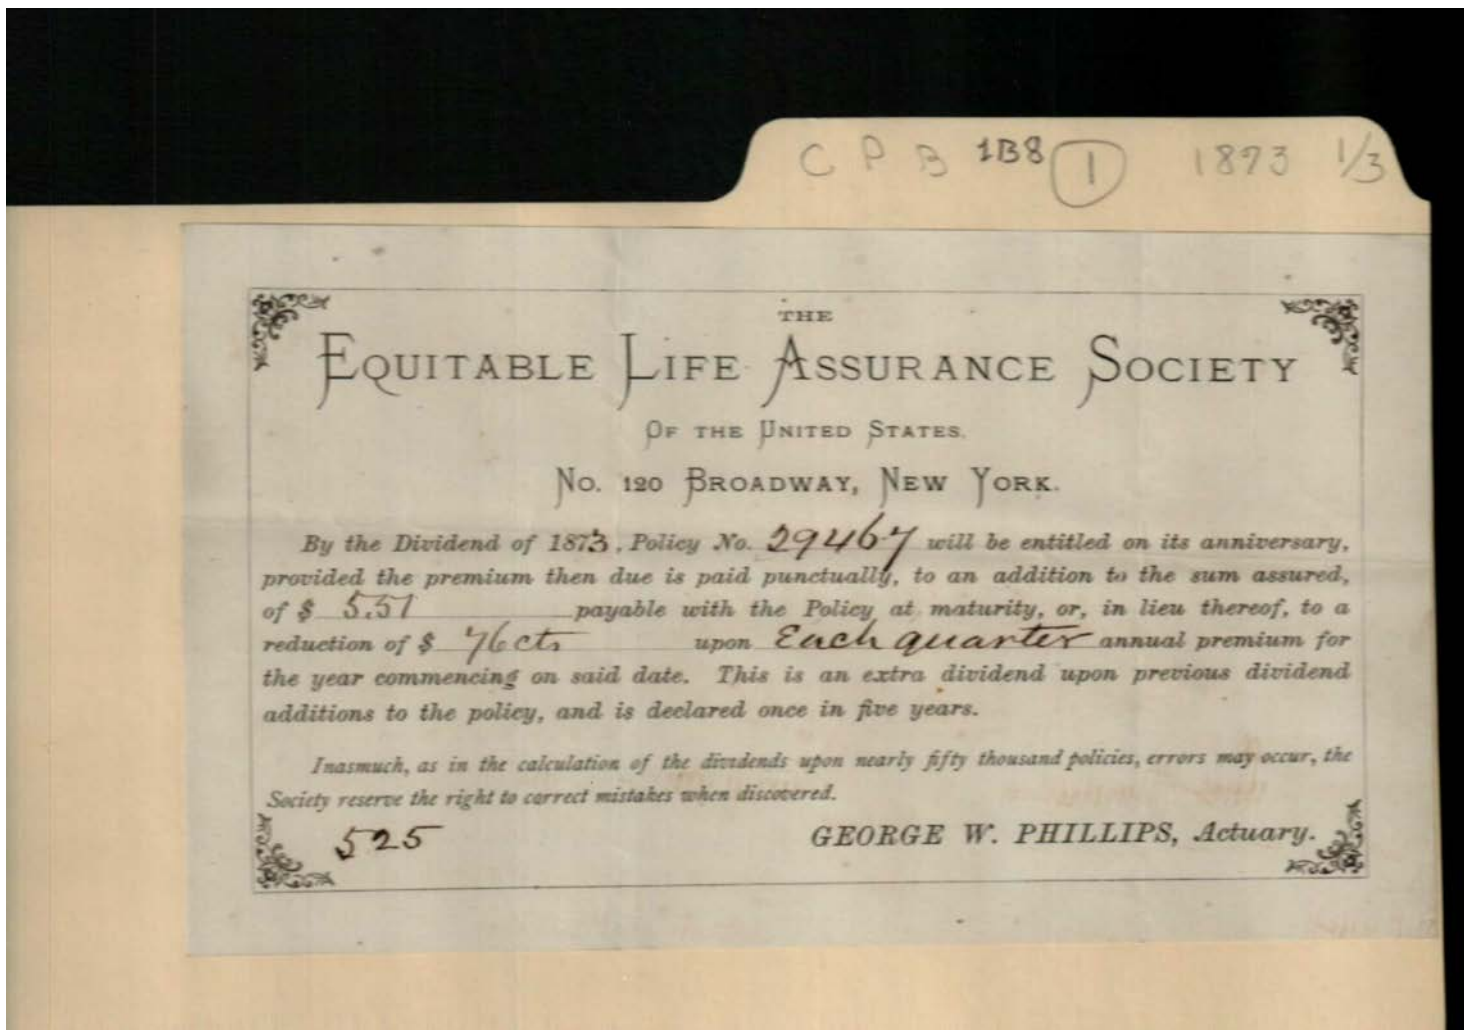 C P B 1B8 1 1873 1/3
THE
EQUITABLE LIFE ASSURANCE SOCIETY
OF THE UNITED STATES.
No. 120 BROADWAY, NEW YORK.
By the Dividend of 1873, Policy No. 29467 will be entitled on its anniversary,
provided the premium then due is paid punctually, to an addition to the sum assured,
of $ 5.57 payable with the Policy at maturity, or, in lieu thereof, to a
reduction of $ 76 cts upon Each quarter annual premium for
the year commencing on said date. This is an extra dividend upon previous dividend
additions to the policy, and is declared once in five years.
Inasmuch, as in the calculation of the dividends upon nearly fifty thousand policies, errors may occur, the
Society reserve the right to correct mistakes when discovered.
525 GEORGE W. PHILLIPS, Actuary.